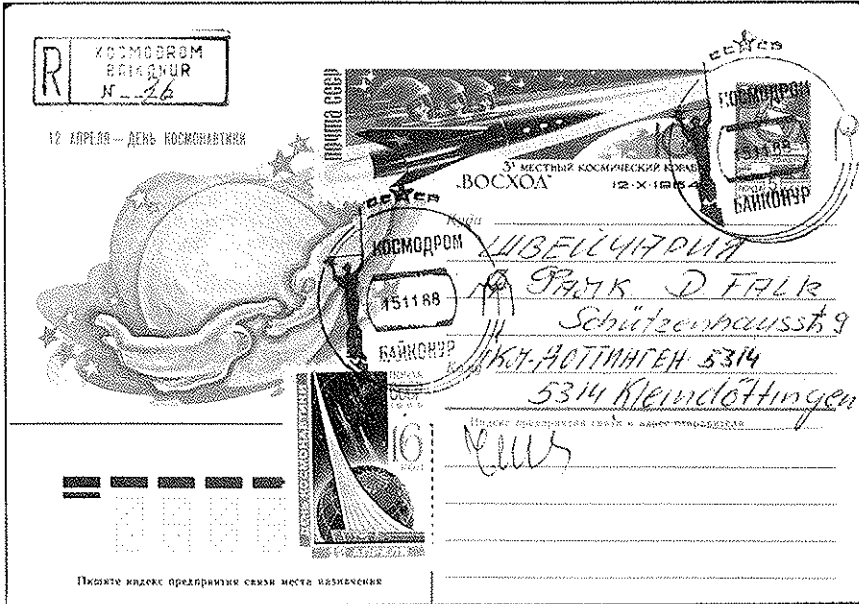 R
KOSMODROM
BAIKONUR
N 26
12 АПРЕЛЯ — ДЕНЬ КОСМОНАВТИКИ
ПОЧТА СССР
3х МЕСТНЫЙ КОСМИЧЕСКИЙ КОРАБ
„ВОСХОД“
12-X-1964
СССР
КОСМОДРОМ
151188
БАЙКОНУР
СССР
КОСМОДРОМ
151188
БАЙКОНУР
Куда
ШВЕЙЦАРИЯ
D FALK
Schützenhausstr 9
Кому
5314
5314 Kleindöttingen
Индекс предприятия связи и адрес отправителя
ПОЧТА
СССР
16
КОП
Пишите индекс предприятия связи места назначения